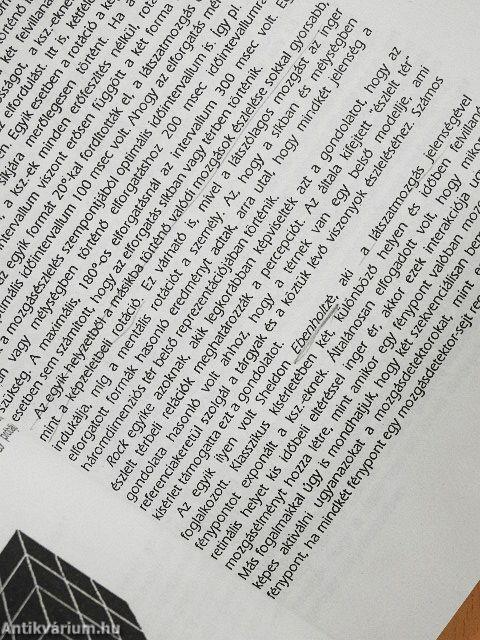 történő
két felvillaná
osságot, a ksz.-ekne
z elfordulást. Itt is, kétféle
en. Egyik esetben a rotáció a ké
síkjára merőlegesen történt. Ha a
a ksz.-ek minden erőfeszítés nélkül, rota
intervallum viszont erősen függött a két forma
az egyik formát 20°-kal fordították el, a látszatmozgás
imális időintervallum 100 msec volt. Ahogy az elforgatás mér
a mozgásészlelés szempontjából optimális időintervallum is. Így pl.
szükség. A maximális, 180°-os elforgatásnál az intervallum 300 msec volt. Egy
an vagy mélységben történő elforgatáshoz 200 msec időintervallumra
esetben sem számított, hogy az elforgatás síkban vagy térben történik.
Az egyik helyzetből a másikba történő valódi mozgások észlelése sokkal gyorsabb,
mint a képzeletbeli rotáció. Ez várható is, mivel a látszólagos mozgást az inger
indukálja, míg a mentális rotációt a személy. Az, hogy a síkban és mélységben
elforgatott formák hasonló eredményt adtak, arra utal, hogy mindkét jelenség a
háromdimenziós tér belső reprezentációjában történik.
Rock egyike azoknak, akik legkorábban képviselték azt a gondolatot, hogy az
észlelt térbeli relációk meghatározzák a percepciót. Az általa kifejtett részlet tér
gondolata hasonló volt ahhoz, hogy a térnek van egy belső modellje, ami
referenciakeretül szolgál a tárgyak és a köztük lévő viszonyok észleléséhez. Számos
kísérlet támogatta ezt a gondolatot.
Az egyik ilyen volt Sheldon Ebenholzé, aki a látszatmozgás jelenségével
foglalkozott. Klasszikus kísérletében két különböző helyen és időben felvillanó
fénypontot exponált a ksz.-eknek. Általánosan elfogadott volt, hogy mikor
retinális helyet kis időbeli eltéréssel inger ér, akkor ezek interakciója
mozgásélményt hozza létre, mint amikor egy fénypont valóban mozog
Más fogalmakkal úgy is mondhatjuk, hogy két szekvenciálisan
képes aktiválni ugyanazokat a mozgásdetektorokat, mint
fénypont, ha mindkét fénypont egy mozgásdetektor-sejt
Antikvárium.hu